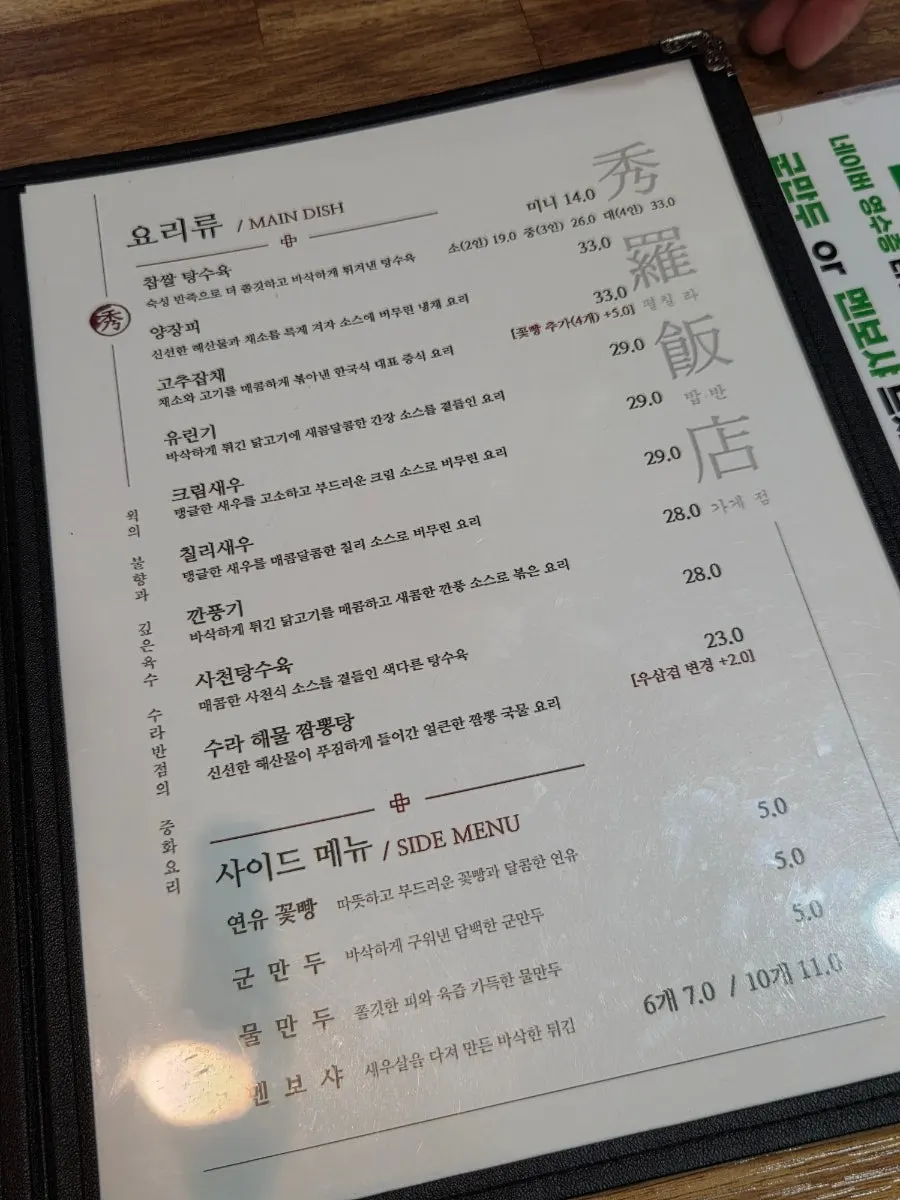 요리류 / MAIN DISH
찹쌀 탕수육 미니 14.0
소(2인) 19.0 중(3인) 26.0 대(4인) 33.0
숙성 반죽으로 더 쫄깃하고 바삭하게 튀겨낸 탕수육
양장피 33.0
신선한 해산물과 채소를 특제 겨자 소스에 버무린 냉채 요리
고추잡채 33.0
[꽃빵 추가(4개) +5.0]
채소와 고기를 매콤하게 볶아낸 한국식 대표 중식 요리
유린기 29.0
바삭하게 튀긴 닭고기에 새콤달콤한 간장 소스를 곁들인 요리
크림새우 29.0
탱글한 새우를 고소하고 부드러운 크림 소스로 버무린 요리
칠리새우 29.0
탱글한 새우를 매콤달콤한 칠리 소스로 버무린 요리
깐풍기 28.0
바삭하게 튀긴 닭고기를 매콤하고 새콤한 깐풍 소스로 볶은 요리
사천탕수육 28.0
매콤한 사천식 소스를 곁들인 색다른 탕수육
수라 해물 짬뽕탕 23.0
[우삼겹 변경 +2.0]
신선한 해산물이 푸짐하게 들어간 얼큰한 짬뽕 국물 요리
사이드 메뉴 / SIDE MENU
연유 꽃빵 따뜻하고 부드러운 꽃빵과 달콤한 연유 5.0
군만두 바삭하게 구워낸 담백한 군만두 5.0
물만두 쫄깃한 피와 육즙 가득한 물만두 5.0
멘보샤 새우살을 다져 만든 바삭한 튀김 6개 7.0 / 10개 11.0
秀
웍의 불향과 깊은육수 수라반점의 중화요리
秀
羅
飯
밥 반
店
가게 점
네이버 영수증
군만두 or 멘보샤